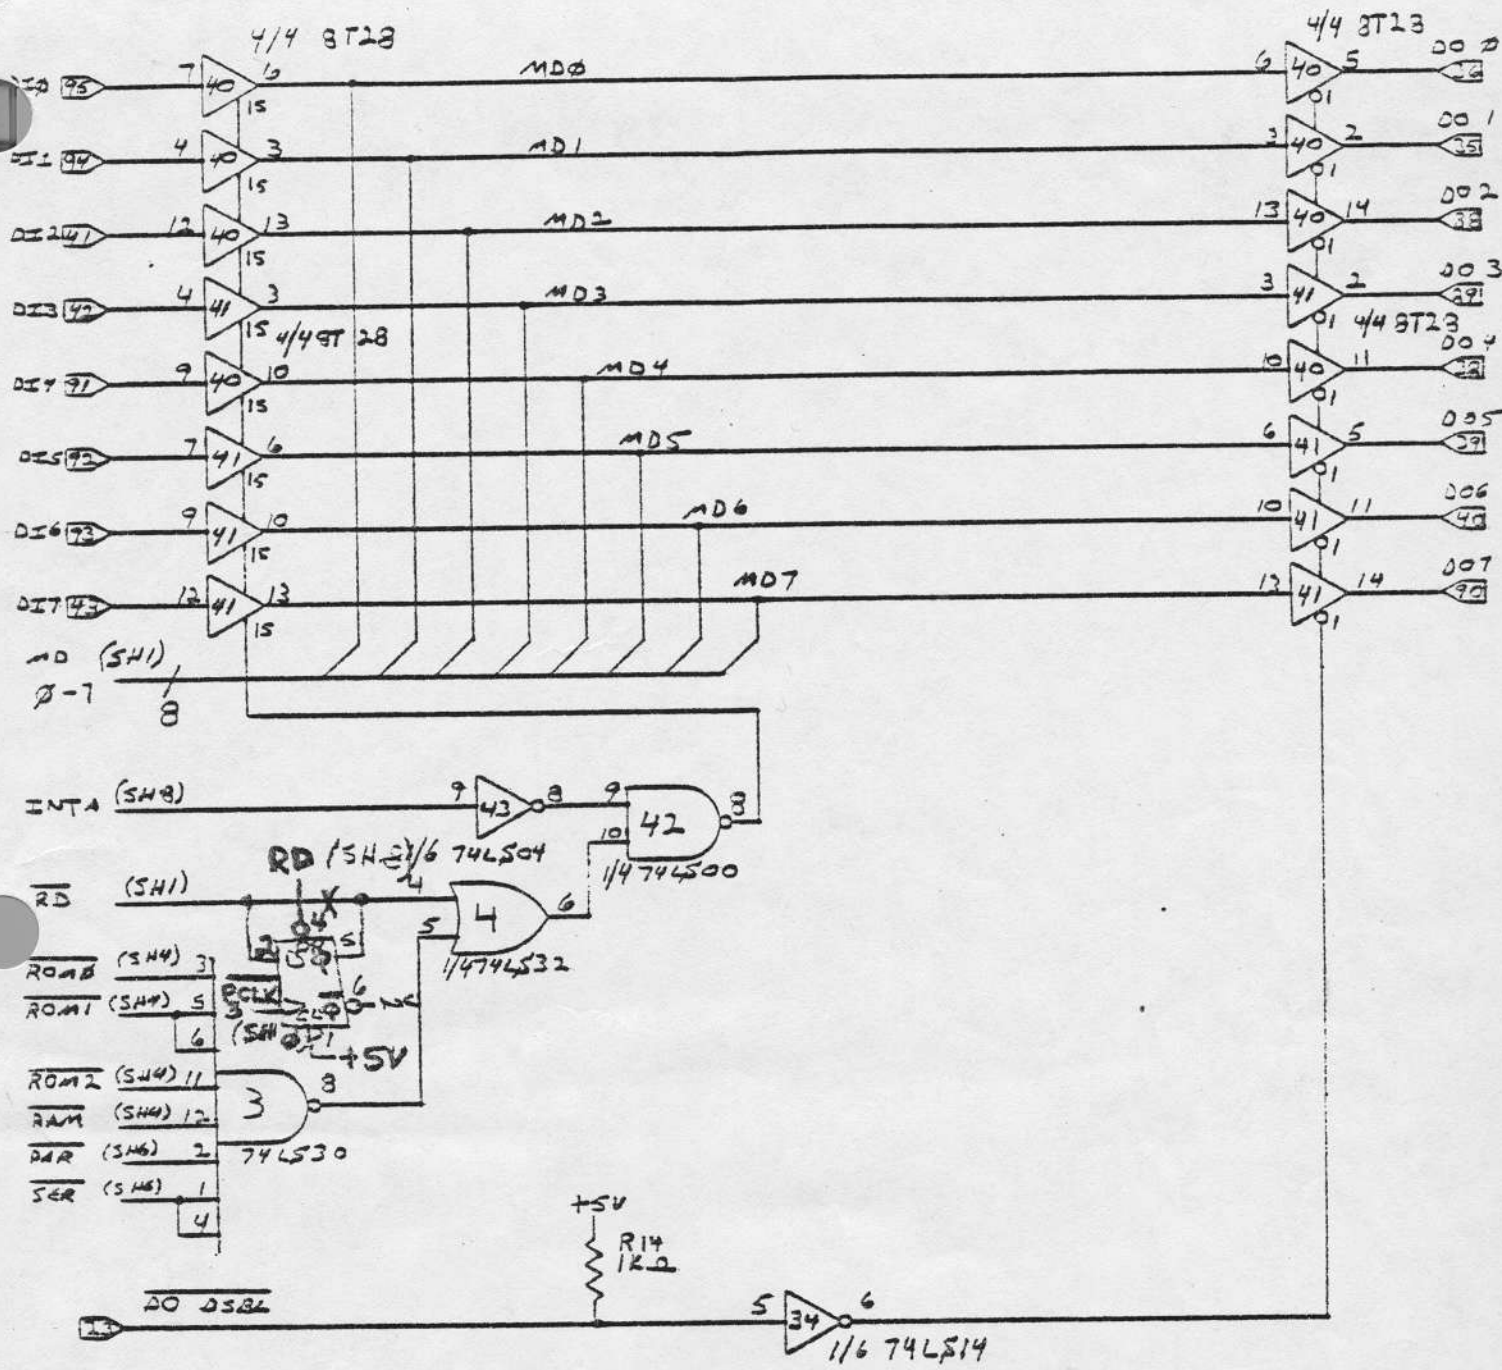 4/4 8T28
4/4 8T23
DIØ 95 7 40 6 15 MDØ 6 40 5 1 DO Ø 36
DI1 94 4 40 3 15 MD1 3 40 2 1 DO 1 35
DI2 41 12 40 13 15 MD2 13 40 14 1 DO 2 38
DI3 42 4 41 3 15 MD3 3 41 2 1 DO 3 39
4/4 8T 28
4/4 8T23
DI4 91 9 40 10 15 MD4 10 40 11 1 DO 4
DI5 92 7 41 6 15 MD5 6 41 5 1 DO5
DI6 93 9 41 10 15 MD6 10 41 11 1 DO6 40
DI7 43 12 41 13 15 MD7 13 41 14 1 DO7 90
MD (SH1)
Ø-7
8
INTA (SH8) 9 43 8 9 42 8
10
RD 1/6 74LS04
1/4 74LS00
RD (SH1) X 4 4 6
5
2 4 5
1/4 74LS32
ROMØ (SH4) 3
PCLK 3 6 NC
ROM1 (SH4) 5
6
+5V
ROM2 (SH4) 11
3 8
RAM (SH4) 12
PAR (SH6) 2
74LS30
SER (SH6) 1
4
+5V
R14
1KΩ
DO DSBL
23 5 34 6
1/6 74LS14